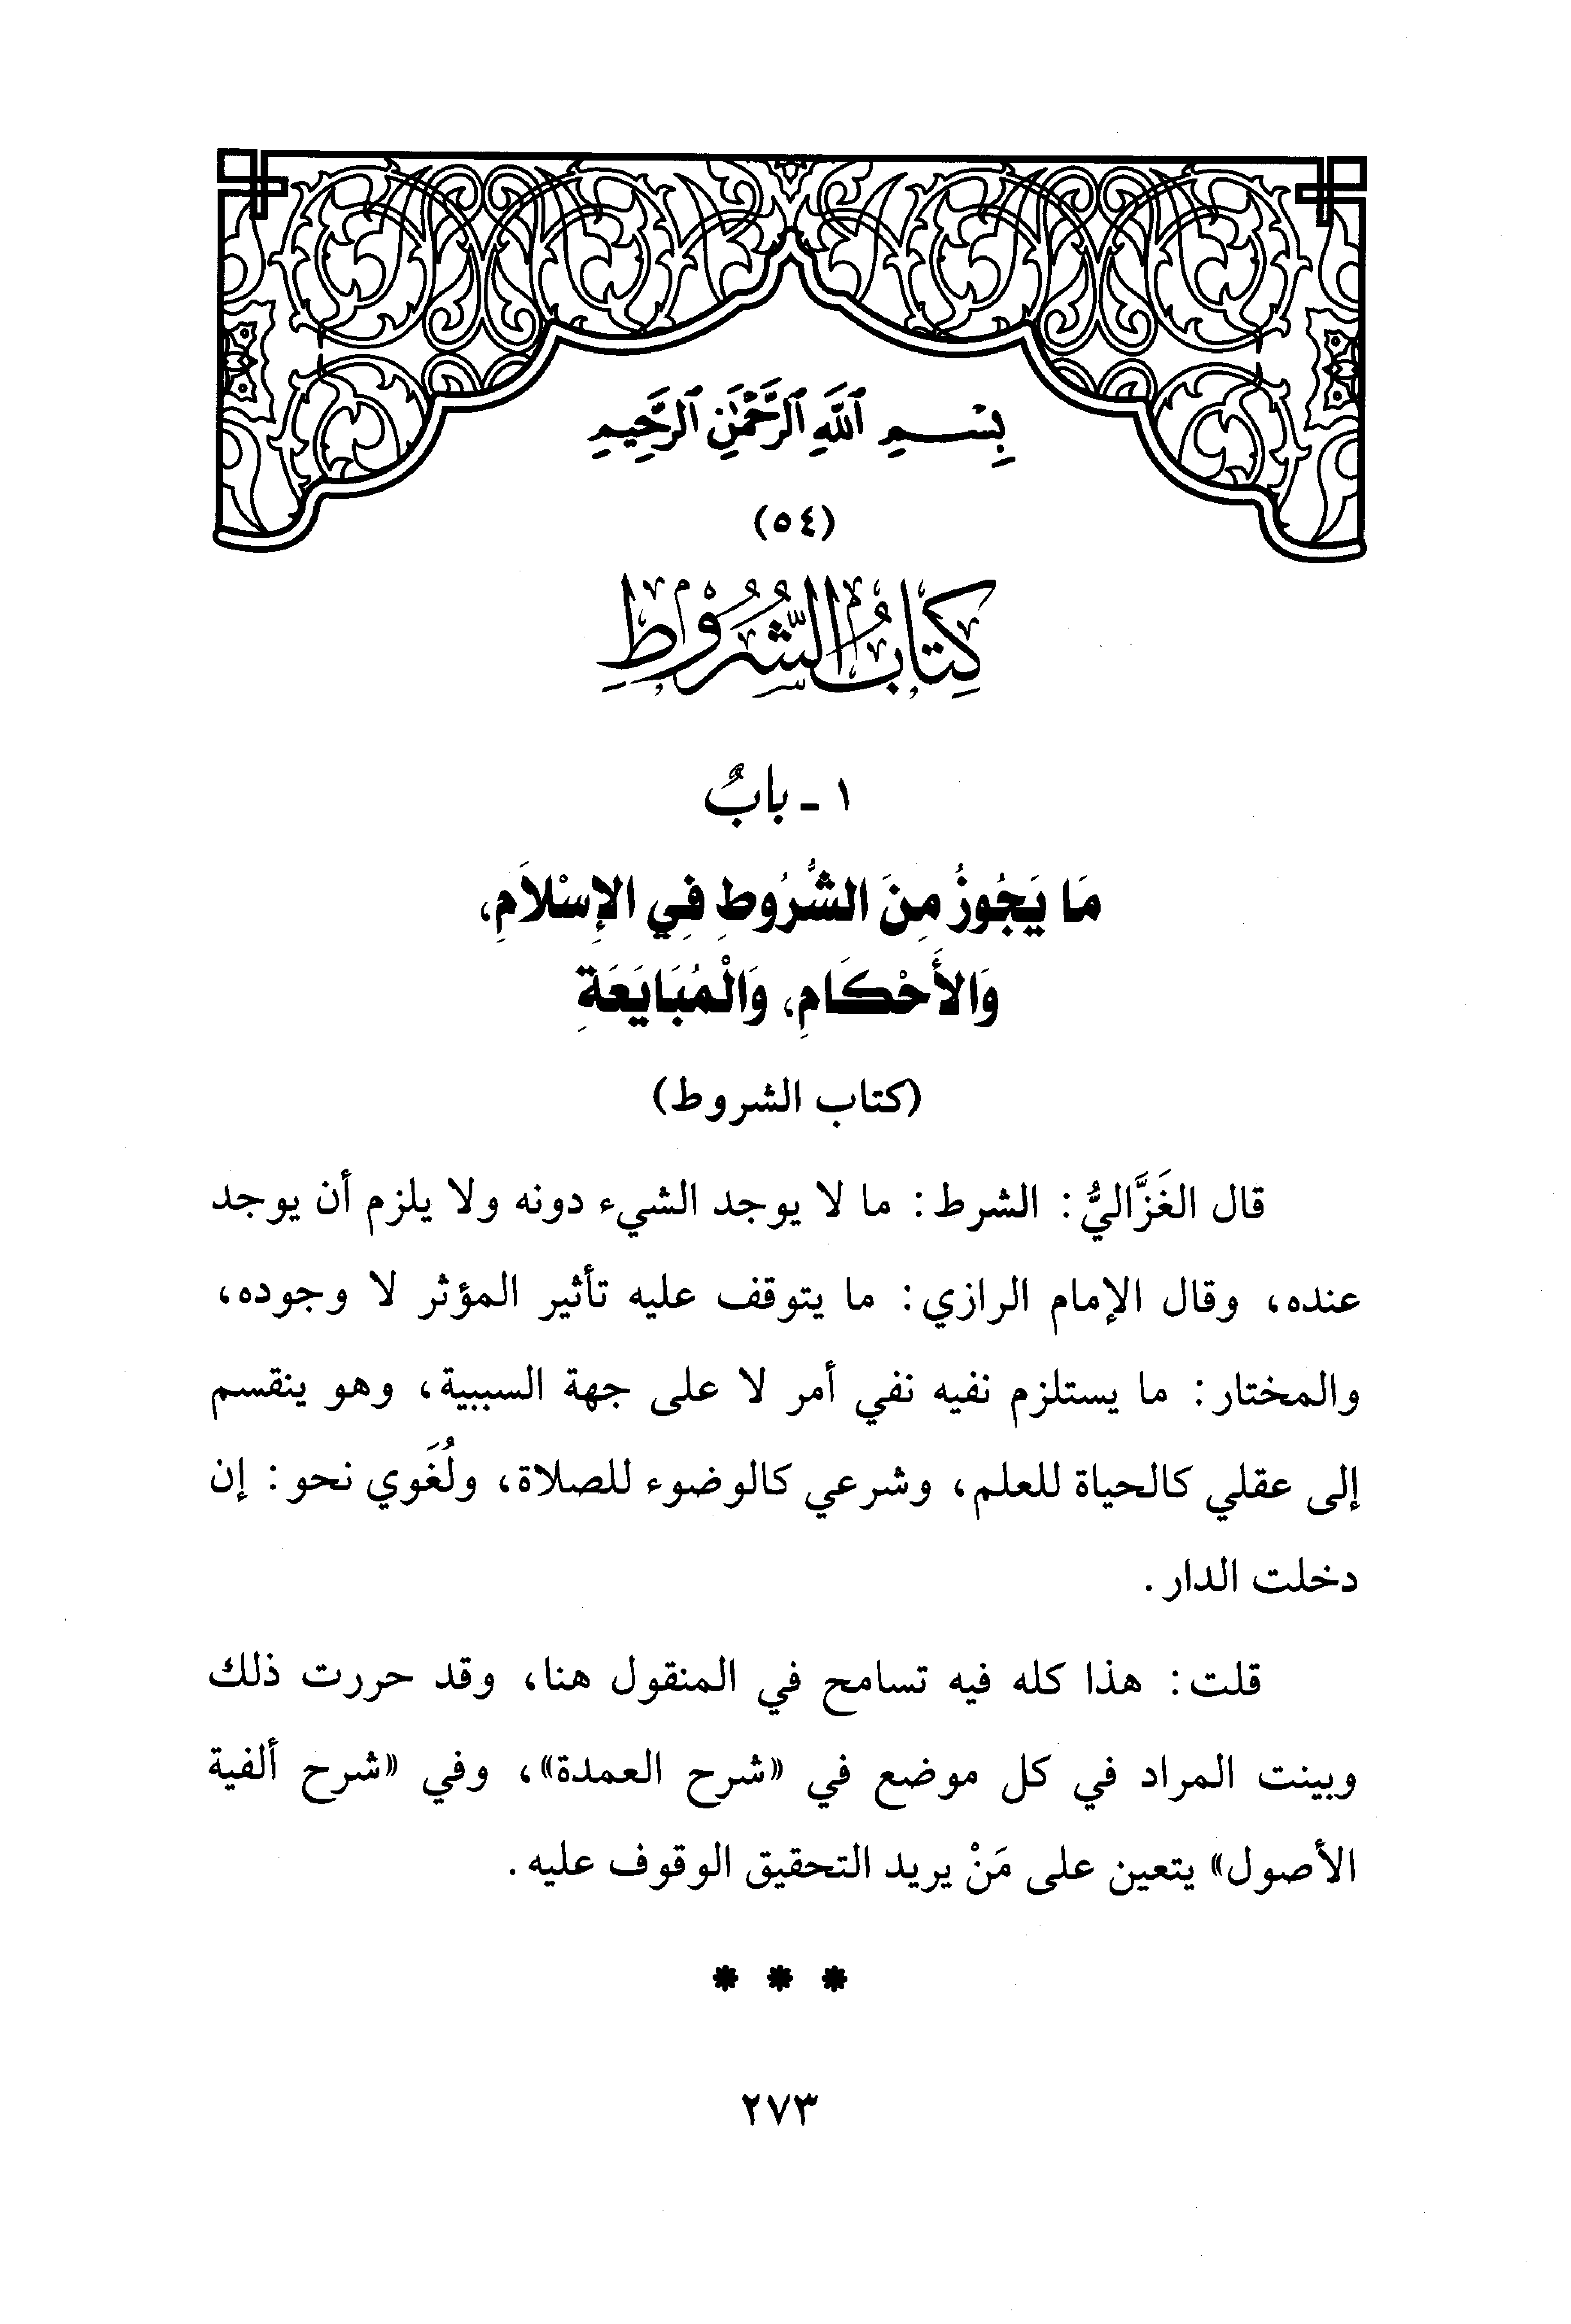 بِسْمِ ٱللَّهِ ٱلرَّحْمَٰنِ ٱلرَّحِيمِ
(٥٤)
كِتَابُ الشُّرُوطِ
١ ـ بابٌ
مَا يَجُوزُ مِنَ الشُّرُوطِ فِي الإِسْلاَمِ،
وَالأَحْكَامِ، وَالْمُبَايَعَةِ
(كتاب الشروط)
قال الغَزَّاليُّ: الشرط: ما لا يوجد الشيء دونه ولا يلزم أن يوجد
عنده، وقال الإمام الرازي: ما يتوقف عليه تأثير المؤثر لا وجوده،
والمختار: ما يستلزم نفيه نفي أمر لا على جهة السببية، وهو ينقسم
إلى عقلي كالحياة للعلم، وشرعي كالوضوء للصلاة، ولُغَوي نحو: إن
دخلت الدار.
قلت: هذا كله فيه تسامح في المنقول هنا، وقد حررت ذلك
وبينت المراد في كل موضع في «شرح العمدة»، وفي «شرح ألفية
الأصول» يتعين على مَنْ يريد التحقيق الوقوف عليه.
* * *
٢٧٣